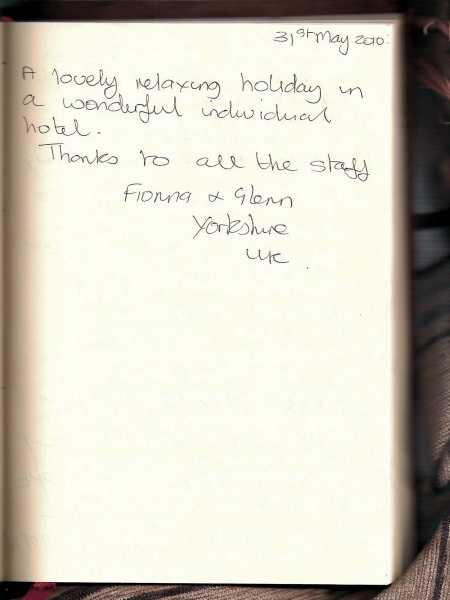 31st May 2010:
A lovely relaxing holiday in
a wonderful individual
hotel.
Thanks to all the staff
Fionna & Glenn
Yorkshire
UK.